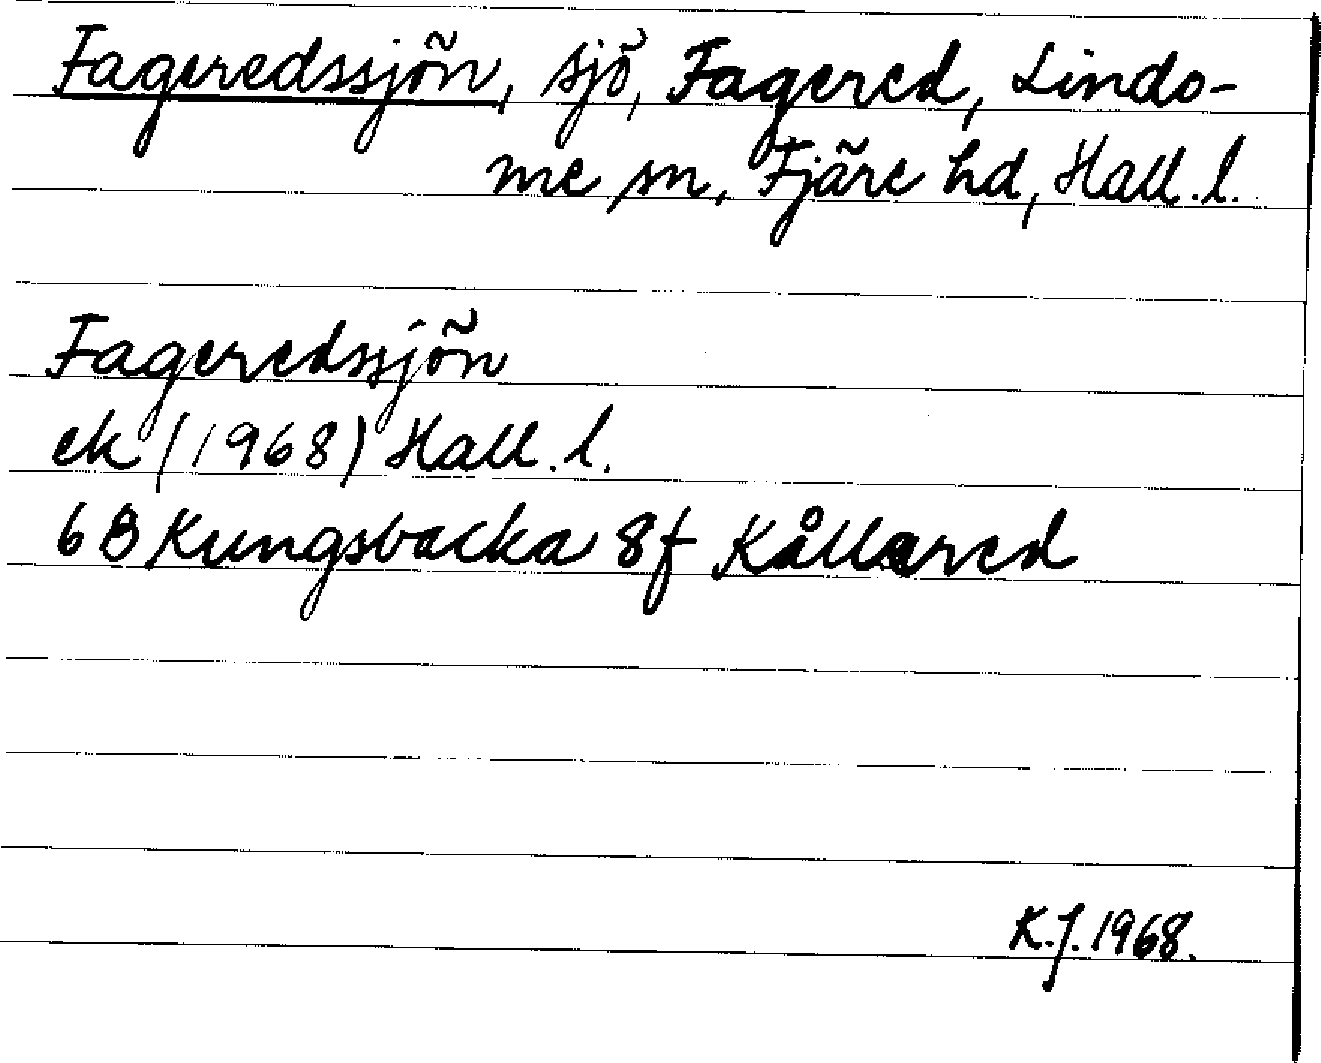 Fageredssjön, sjö, Fagered, Lindo-
me sn, Fjäre hd, Hall. l.
Fageredssjön
ek (1968) Hall. l.
6B Kungsbacka 8f Kållered
K.J. 1968.